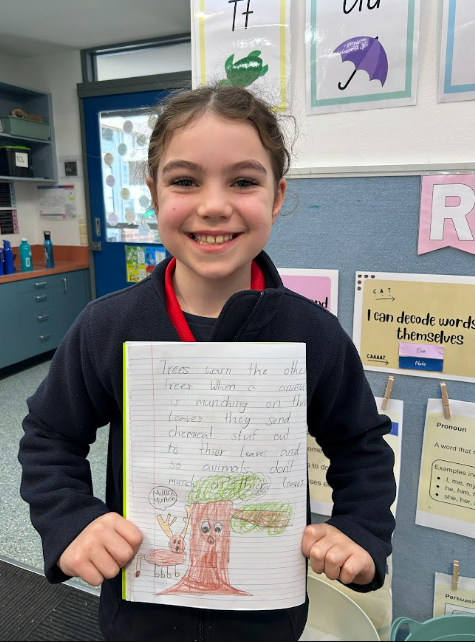 Tt
Uu
R
CAT
I can decode words
themselves
CAAAAT
Trees warn the other
trees when a animal
is munching on the
leaves they send
chemical stuf out
to thier leave and
so animals dont
munch on thier leaves
Munch
Munch
Pronoun
A word that
Examples in
I, me, my
he, him,
she, her,
Persuasive